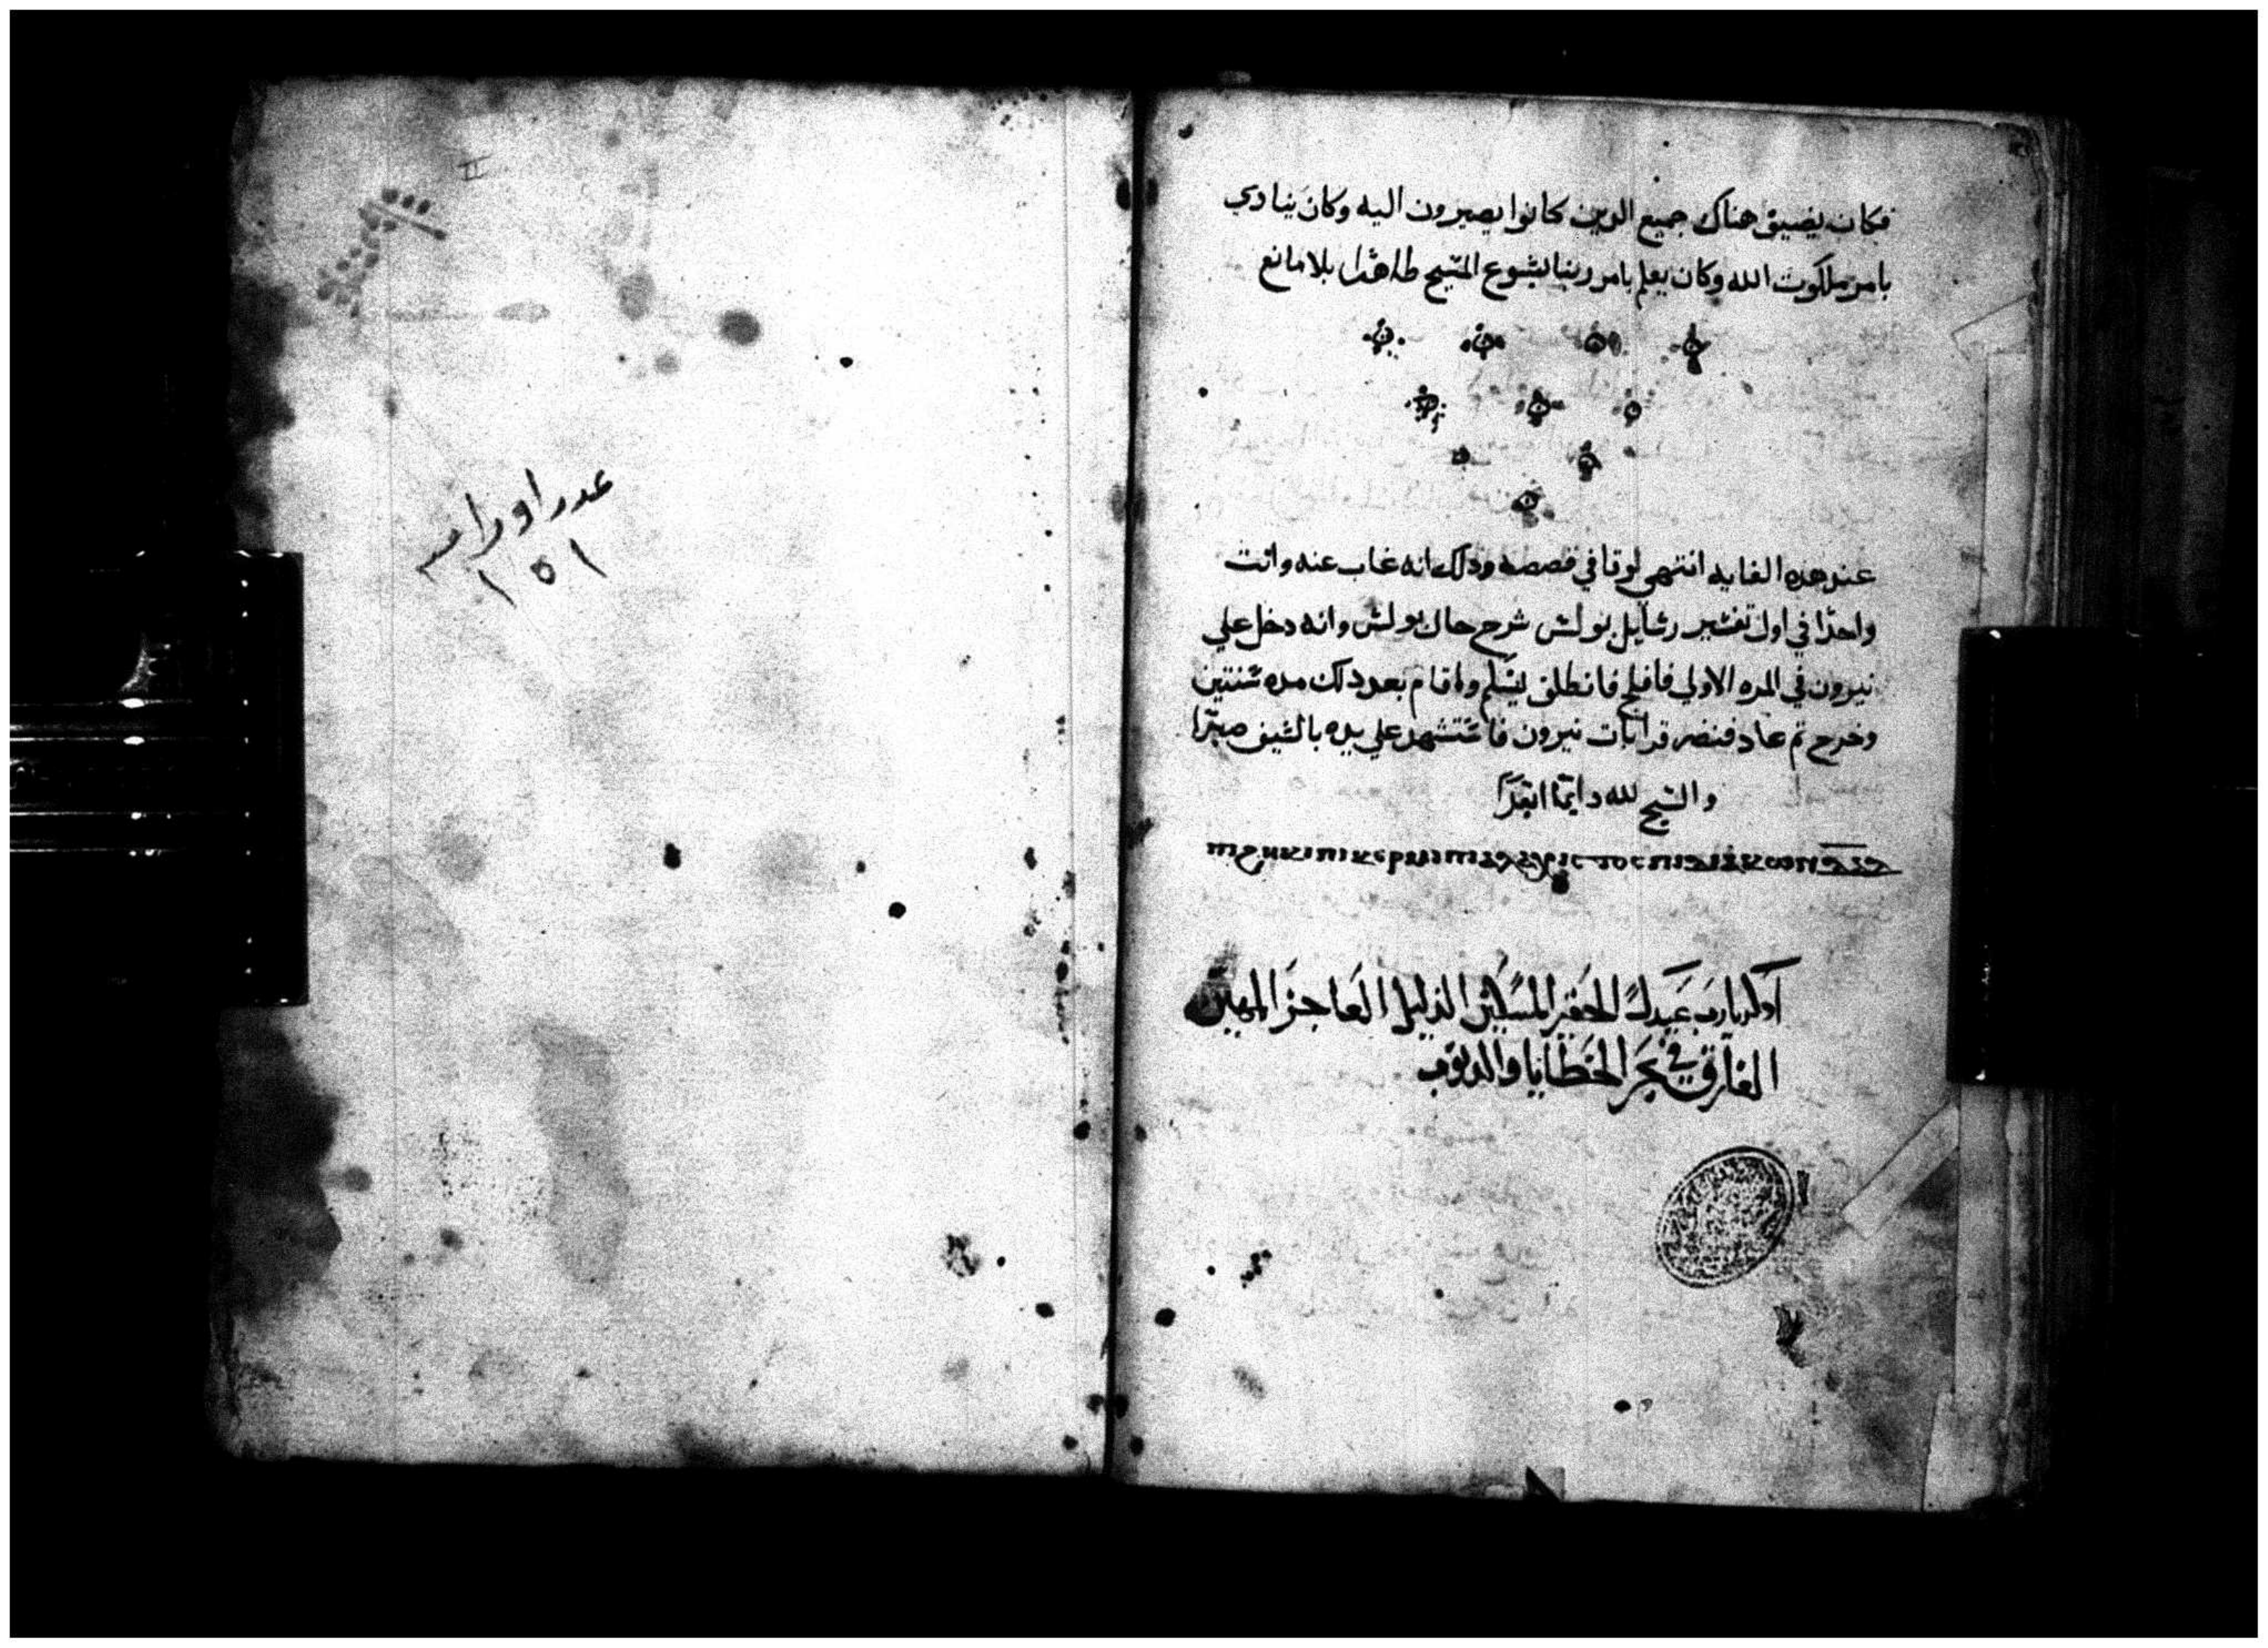 فكان يضيق هناك جميع الدين كانوا يصيرون اليه وكان ينادي
بامر ملكوت الله وكان يعلم بامر ربنا يشوع المسيح طاهرا بلا مانع
عند هده الغايه انتهي لوقا في قصصه ودلك انه غاب عنه واتت
واحدا في اول تفسير رسايل بولس شرح حال بولس وانه دخل علي
نيرون في المره الاولي فافلح فانطلق ليسلم واقام بعد دلك مده سنتين
وخرج تم عاد فنضر قرابات نيرون فاستشهد علي يده بالسيف صبرا
والسبح لله دايما ابدا
اولد يارب عبيدك الحقير المسكين الذليل العاجز المهين
الغارق في بحر الخطايا والدنوب
عدد اوراسه
١٥١
II